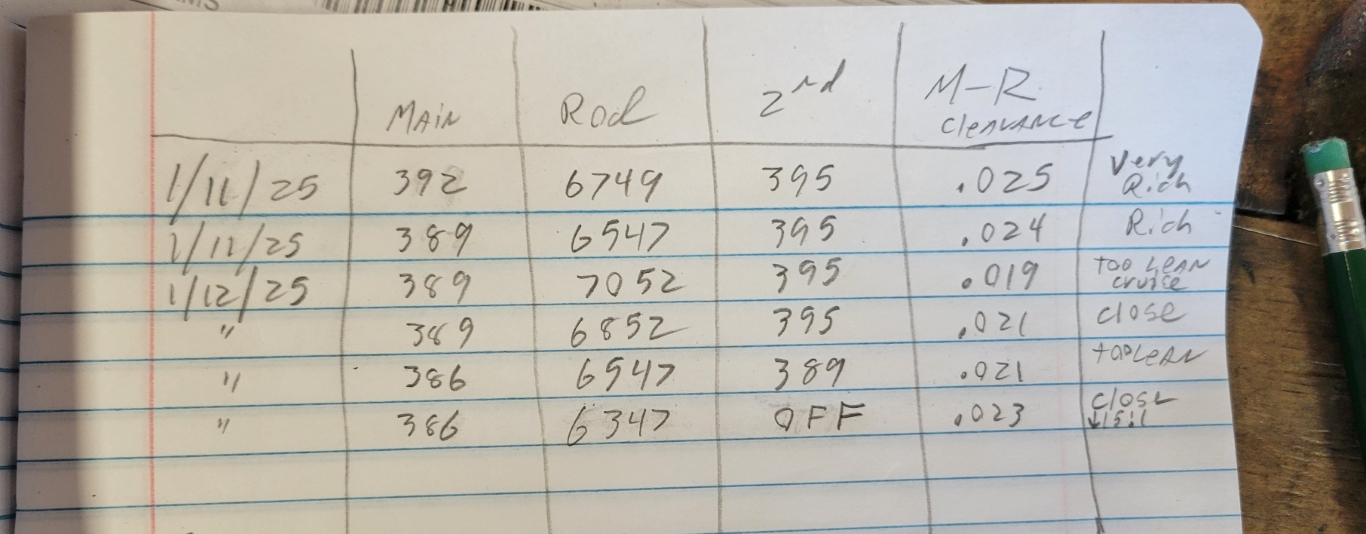 Main Rod 2nd M-R Clearance
1/11/25 392 6749 395 .025 Very Rich
1/11/25 389 6547 395 .024 Rich
1/12/25 389 7052 395 .019 too Lean cruise
" 389 6852 395 .021 close
" 386 6547 389 .021 too Lean
" 386 6347 OFF .023 close ↓15:1